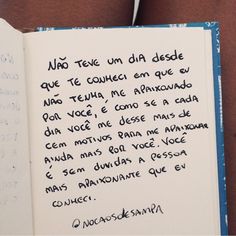 NÃO TEVE UM DIA DESDE
QUE TE CONHECI EM QUE EU
NÃO TENHA ME APAIXONADO
POR VOCÊ, É COMO SE A CADA
DIA VOCÊ ME DESSE MAIS DE
CEM MOTIVOS PARA ME APAIXONAR
AINDA MAIS POR VOCÊ. VOCÊ
É SEM DUVIDAS A PESSOA
MAIS APAIXONANTE QUE EU
CONHECI.
@NOCAOSDESAMPA